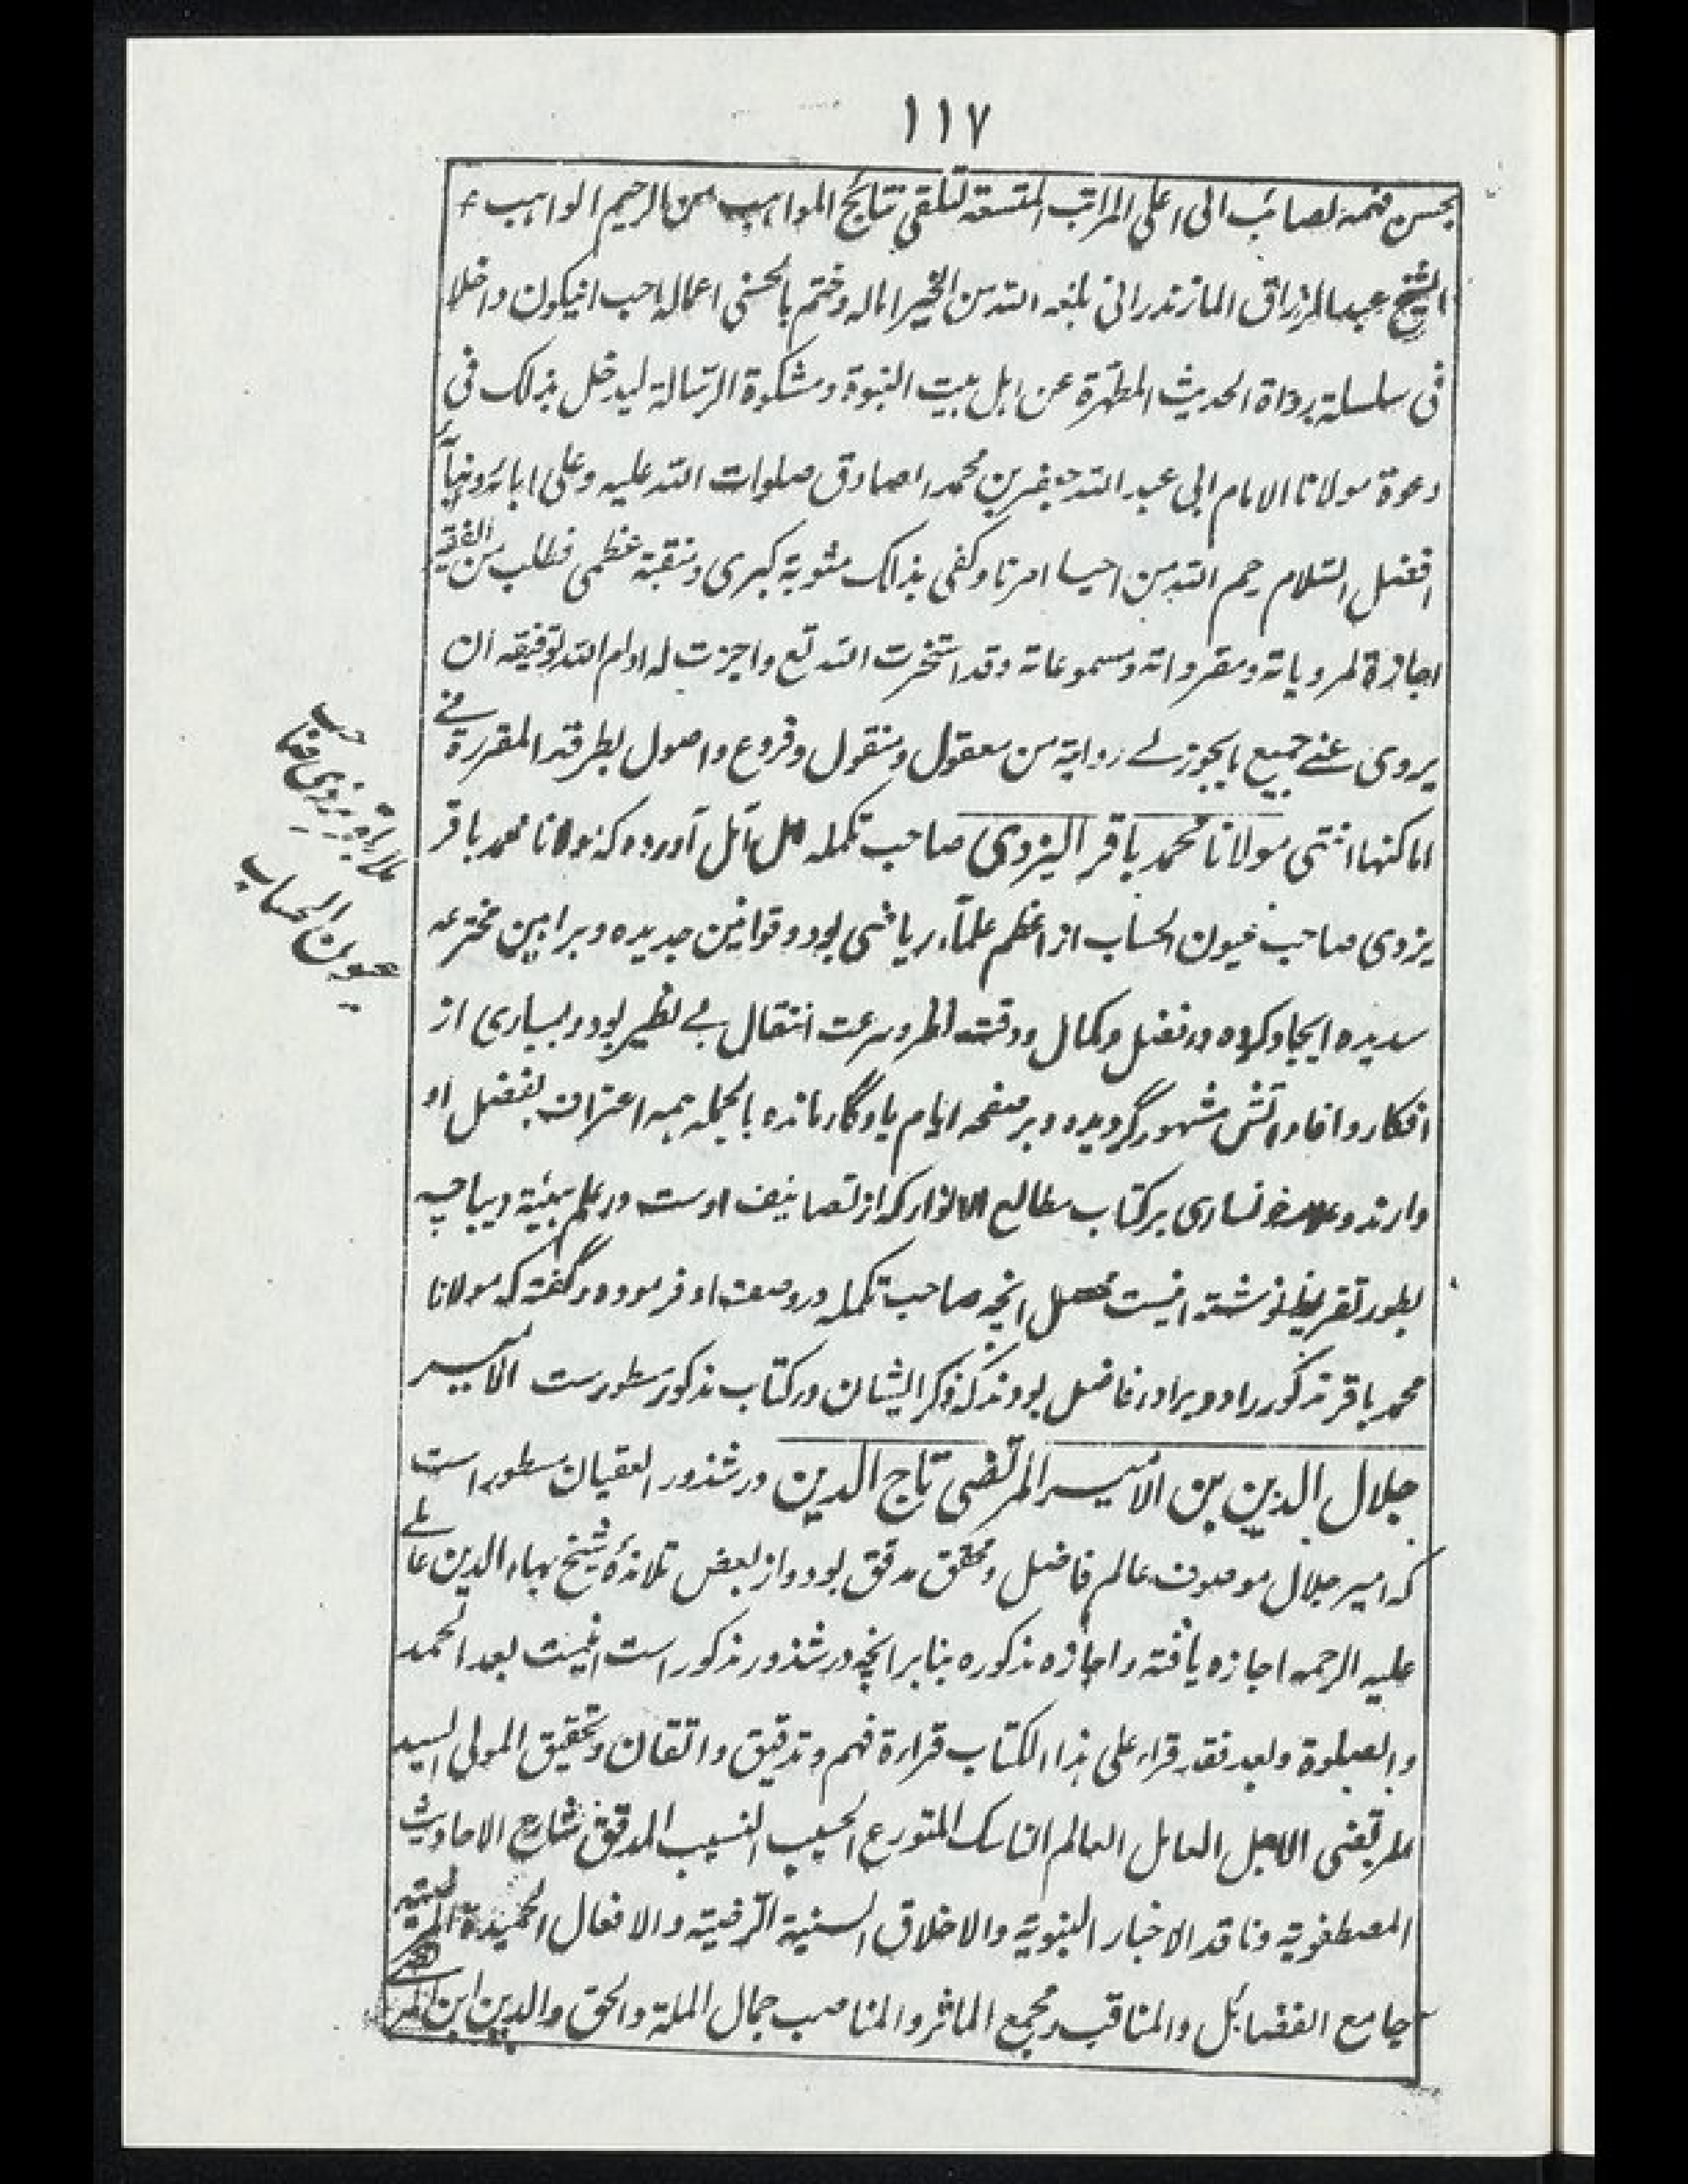 ١١٧
بحسن فهمه الصائب الى اعلى المراتب المتسعة لتلقى نتايج المواهب من الرحيم الواهب
الشيخ عبد الرزاق المازندرانى بلغه الله من الخير اماله وختم بالحسنى اعماله احب انيكون داخلا
فى سلسلة رواة الحديث المطهرة عن اهل بيت النبوة ومشكوة الرسالة ليدخل بذلك فى
دعوة مولانا الامام ابى عبد الله جعفر بن محمد الصادق صلوات الله عليه وعلى ابائه
افضل السلام رحم الله من احيا امرنا وكفى بذلك مثوبة كبرى ومنقبة عظمى فطلب من الفقير
اجازة لمروياته ومقرواته ومسموعاته وقد استخرت الله تع واجزت له ادام الله توفيقه ان
يروى عنے جميع مايجوز لے رواية من معقول ومنقول وفروع واصول بطرقه المقررة فے
اماكنها انتهى مولانا محمد باقر اليزدى صاحب تكمله امل آمل آورده كه مولانا محمد باقر
يزدى صاحب عيون الحساب از اعظم علمآء رياضى بود و قوانين جديده وبراهين مخترعه
سديده ايجاد كرده در فضل وكمال ودقت نظر وسرعت انتقال بے نظير بود و بسيارى از
افكار و افاداتش مشهور گرديده وبر صفحه ايام يادگار مانده بالجمله همه اعتراف بفضل او
دارند و علامه خونسارى بر كتاب مطالع الانوار كه از تصانيف اوست در علم هيئة ديباچه
بطور تقريظ نوشته اينست محصل انچه صاحب تكمله در وصف او فرموده و گفته كه مولانا
محمد باقر مذكور را دو برادر فاضل بودند كه ذكر ايشان در كتاب مذكور مسطور ست الامير
جلال الدين بن الامير المرتضى تاج الدين در شذور العقيان مسطور است
كه امير جلال موصوف عالم فاضل ومحقق مدقق بود و از بعض تلامذهٔ شيخ بهاء الدين عاملے
عليه الرحمه اجازه يافته و اجازه مذكوره بنا بر انچه در شذور مذكور است اينست بعد الحمد
والصلوة وبعد فقد قراء على هذا الكتاب قراءة فهم وتدقيق واتقان وتحقيق المولى السيد
المرتضى الاجل العامل العالم الناسك المتورع الحسيب النسيب المدقق شارح الاحاديث
المصطفوية وناقد الاخبار النبوية والاخلاق السنية الرضية والافعال الحميدة
جامع الفضايل والمناقب ومجمع الماثر والمناصب جمال الملة والحق والدين ابن
ملا باقر يزدى صاحب
عيون الحساب